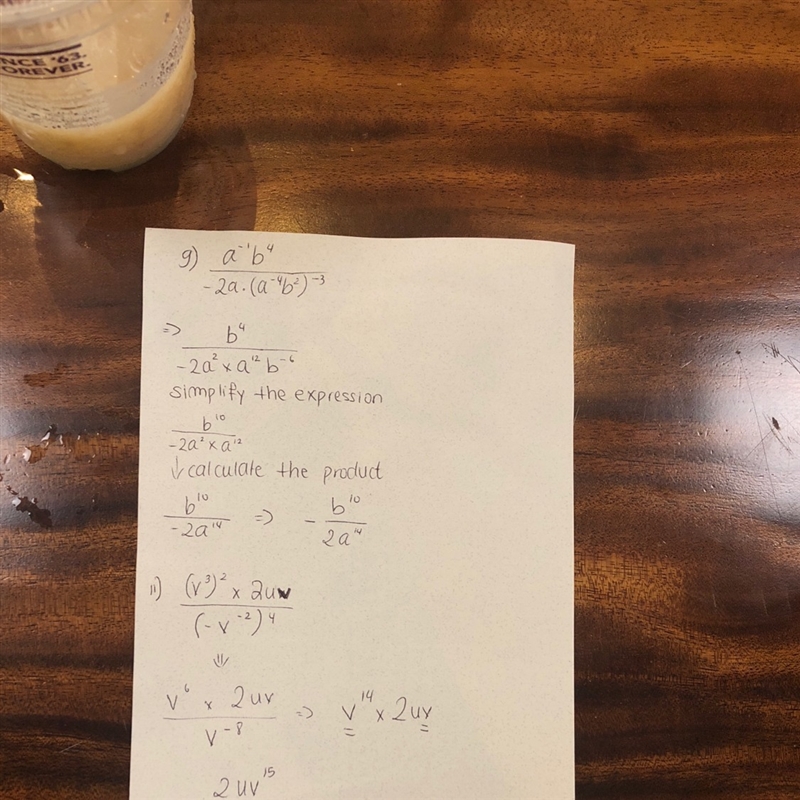 NCE '63.
OREVER.
9) a⁻¹b⁴
-2a·(a⁻⁴b²)⁻³
=> b⁴
-2a² × a¹² b⁻⁶
simplify the expression
b¹⁰
-2a² × a¹²
↓ calculate the product
b¹⁰ / -2a¹⁴ => - b¹⁰ / 2a¹⁴
11) (v³)² × 2uv
(-v⁻²)⁴
⇓
v⁶ × 2uv / v⁻⁸ => v¹⁴ × 2uv
2uv¹⁵